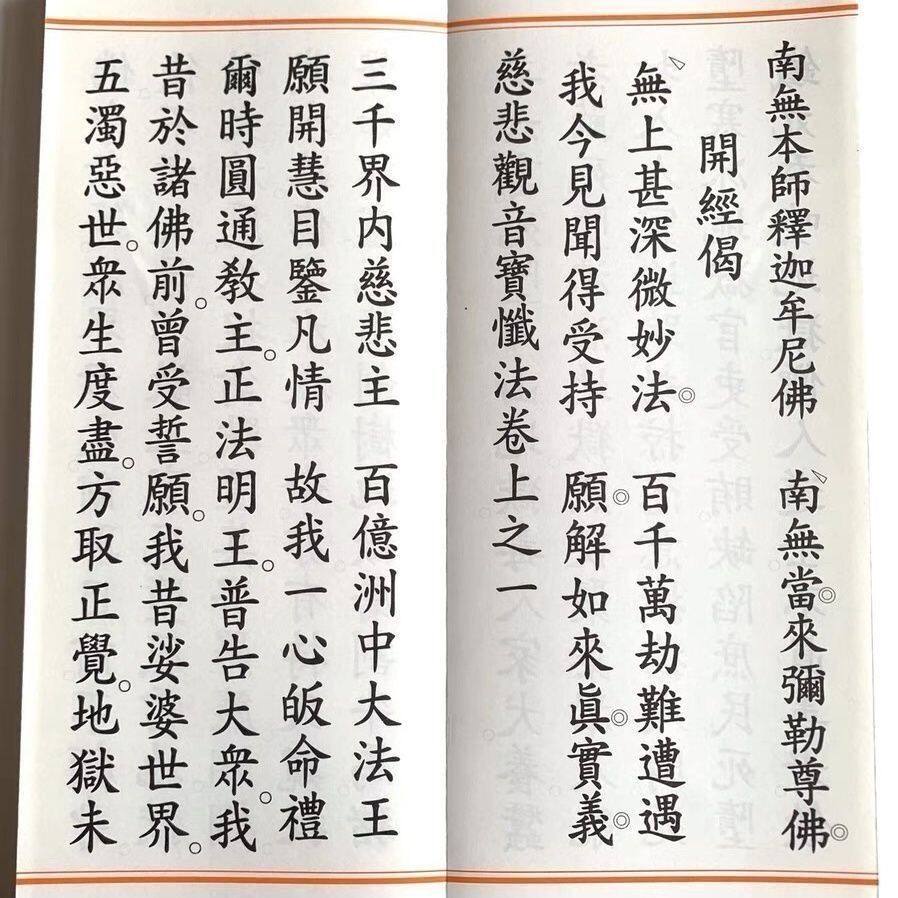 南無本師釋迦牟尼佛　南無當來彌勒尊佛
開經偈
無上甚深微妙法　百千萬劫難遭遇
我今見聞得受持　願解如來眞實義
慈悲觀音寶懺法卷上之一
三千界内慈悲主　百億洲中大法王
願開慧目鑒凡情　故我一心皈命禮
爾時圓通教主。正法明王。普告大眾。我
昔於諸佛前。曾受誓願。我昔娑婆世界。
五濁惡世。眾生度盡。方取正覺。地獄未